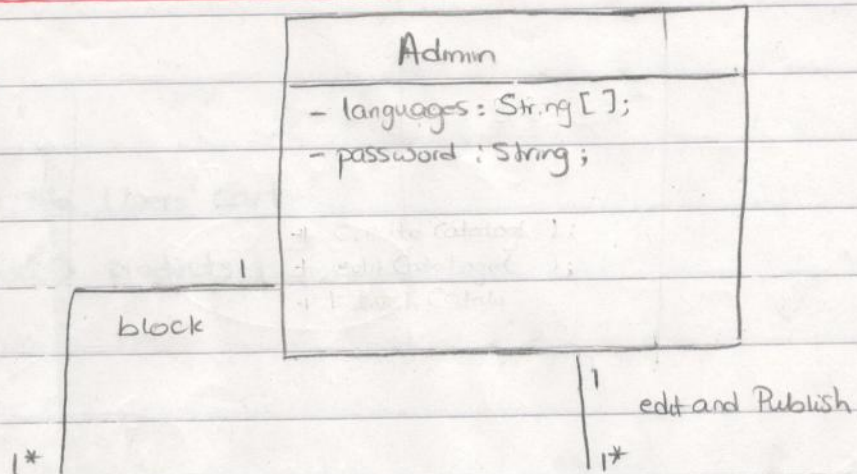 Admin
- languages: String [ ];
- password : String ;
1
block
1*
1
edit and Publish
1*